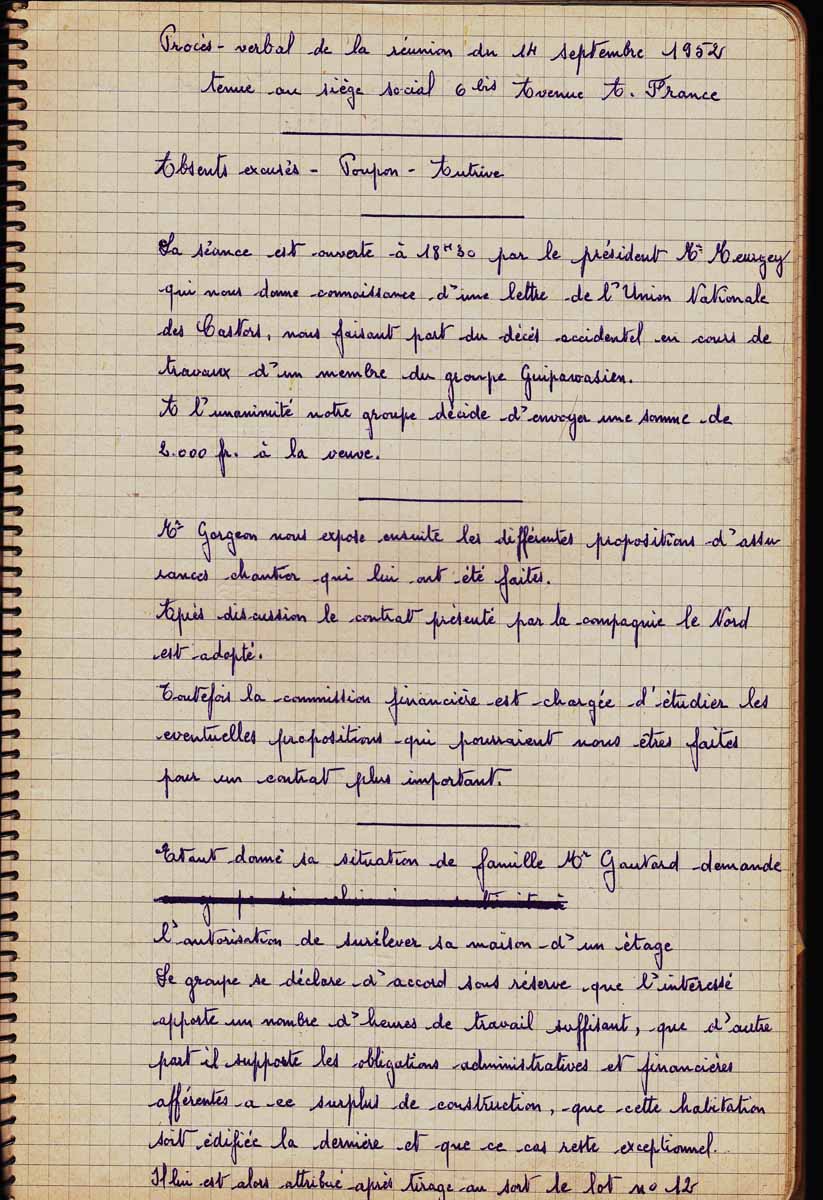 Procès-verbal de la réunion du 14 septembre 1952
tenue au siège social 6 bis Avenue A. France
Absents excusés - Poupon - Autrive
La séance est ouverte à 18H30 par le président Mr Meurgey
qui nous donne connaissance d'une lettre de l'Union Nationale
des Castors, nous faisant part du décés accidentel en cours de
travaux d'un membre du groupe Guipavasien.
A l'unanimité notre groupe décide d'envoyer une somme de
2.000 fr. à la veuve.
Mr Gorgeon nous expose ensuite les différentes propositions d'assu
rances chantier qui lui ont été faites.
Après discussion le contrat présenté par la compagnie le Nord
est adopté.
Toutefois la commission financière est chargée d'étudier les
eventuelles propositions qui pourraient nous êtres faites
pour un contrat plus important.
Etant donné sa situation de famille Mr Gautard demande
l'autorisation de surélever sa maison d'un étage
Le groupe se déclare d'accord sous réserve que l'interessé
apporte un nombre d'heures de travail suffisant, que d'autre
part il supporte les obligations administratives et financières
afférentes a ce surplus de construction, que cette habitation
soit édifiée la dernière et que ce cas reste exceptionnel.
Il lui est alors attribué après tirage au sort le lot no 12